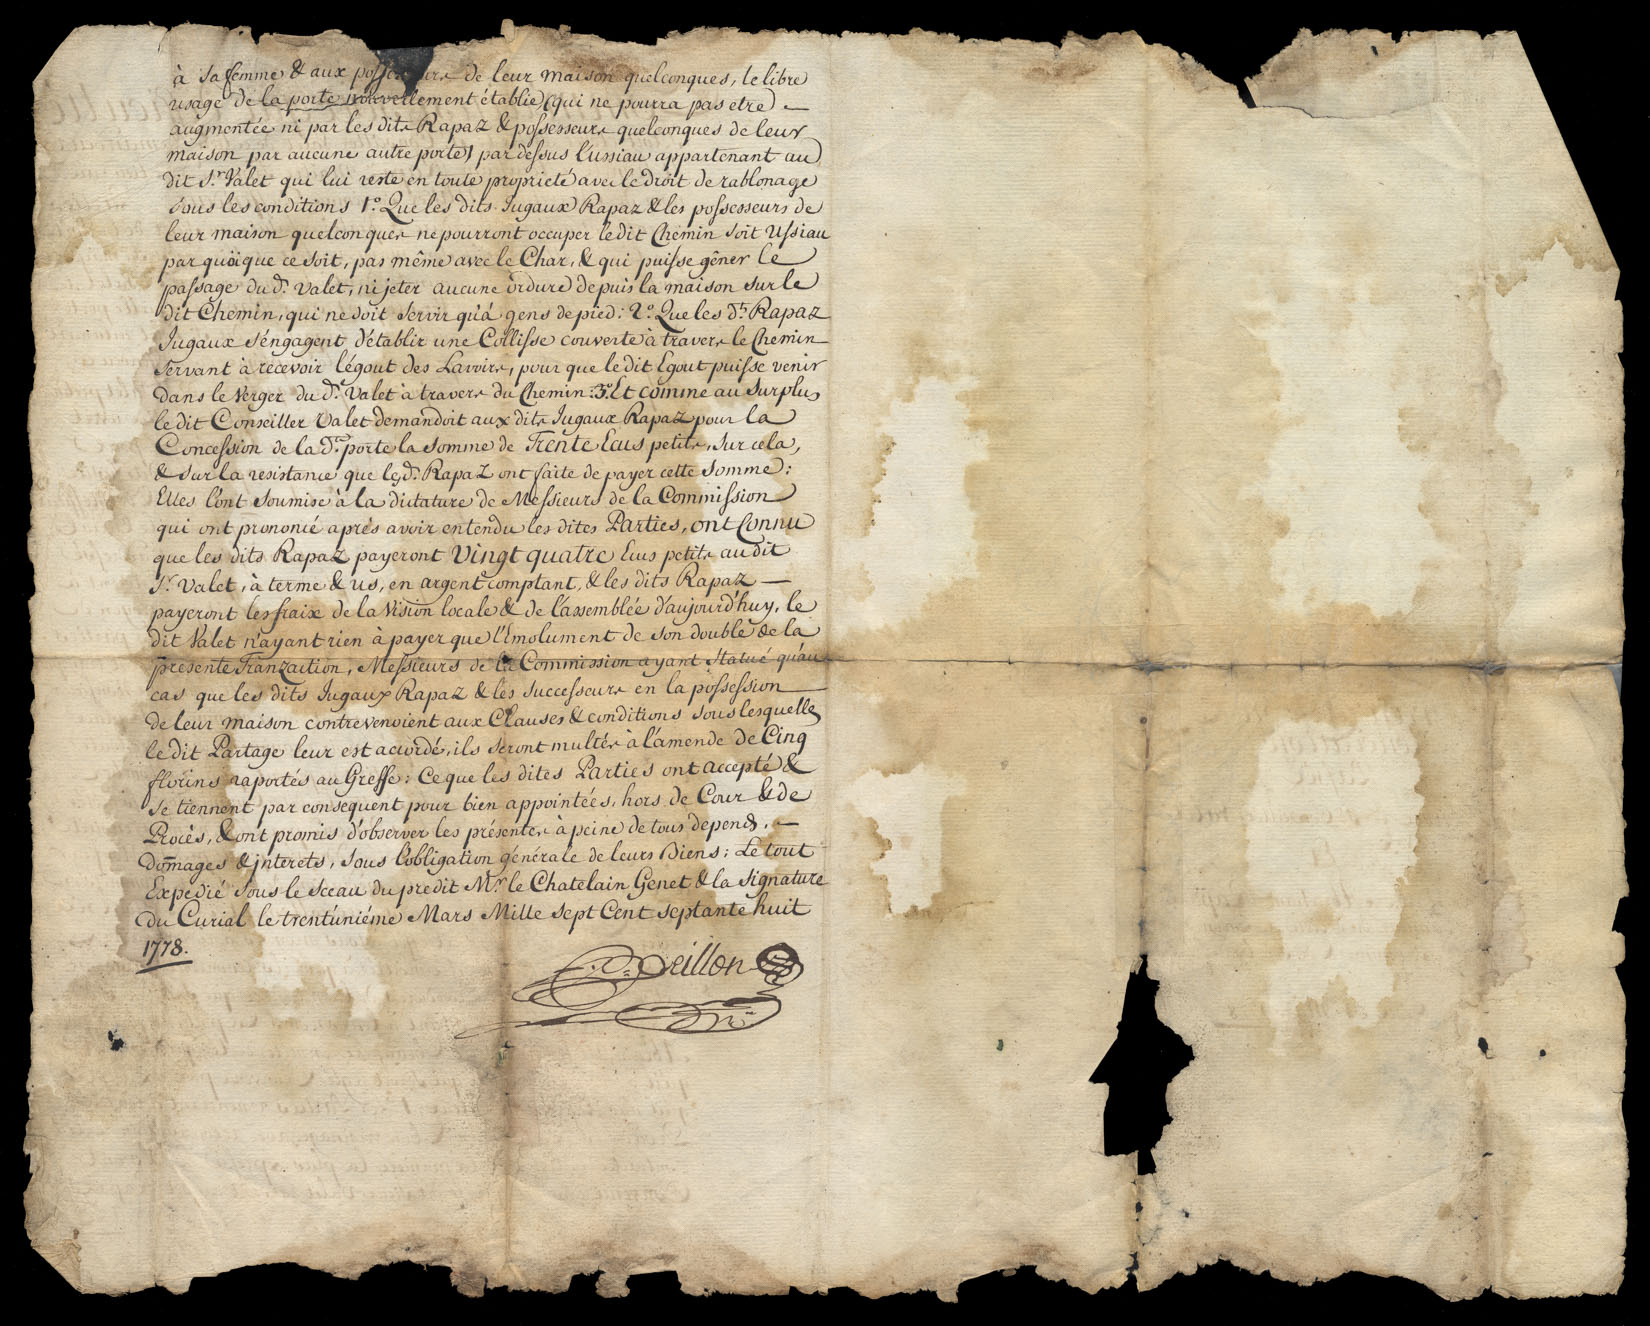 à sa femme & aux possesseurs de leur maison quelconques, le libre
usage de la porte nouvellement établie (qui ne pourra pas etre) —
augmentée ni par les dits Rapaz & possesseurs quelconques de leur
maison par aucune autre porte) par dessus l'ussiau appartenant au
dit Sr. Valet qui lui reste en toute proprieté avec le droit de rablonage
sous les conditions 1.° Que les dits Jugaux Rapaz & les possesseurs de
leur maison quelconques ne pourront occuper le dit Chemin soit Ussiau
par quoique ce soit, pas même avec le Char, & qui puisse gêner le
passage du d.t Valet, ni jeter aucune ordure depuis la maison sur le
dit Chemin, qui ne doit servir qu'à gens de pied: 2.° Que les d.ts Rapaz
Jugaux s'engagent d'établir une Collisse couverte à travers le Chemin
servant à recevoir l'égout des Lavoirs, pour que le dit Egout puisse venir
dans le Verger du d.t Valet à travers du Chemin: 3.° Et comme au surplus
le dit Conseiller Valet demandoit aux dits Jugaux Rapaz pour la
Concession de la d.te porte la somme de Trente Ecus petits, sur cela,
& sur la resistance que les d.ts Rapaz ont faite de payer cette somme:
Elles l'ont soumise à la dictature de Messieurs de la Commission
qui ont prononcé aprés avoir entendu les dites Parties, ont Connu
que les dits Rapaz payeront Vingt quatre Ecus petits au dit
Sr. Valet, à terme & us, en argent comptant, & les dits Rapaz —
payeront les fraix de la Vision locale & de l'assemblée d'aujourd'huy, le
dit Valet n'ayant rien à payer que l'Emolument de son double de la
presente Tranzaction, Messieurs de la Commission ayant Statué qu'au
cas que les dits Jugaux Rapaz & les Successeurs en la possession
de leur maison contrevenoient aux Clauses & conditions sous lesquelles
le dit Partage leur est acordé, ils seront multés à l'amende de Cinq
florins raportés au Greffe: Ce que les dites Parties ont accepté &
se tiennent par consequent pour bien appointées, hors de Cour & de
Procès, & ont promis d'observer les présentes à peine de tous depends, —
Dom̄ages & jnterets, sous l'obligation générale de leurs Biens: Le tout
Expedié sous le Sceau du predit Mr. le Chatelain Genet & la signature
du Curial le trent'uniéme Mars Mille Sept Cent septante huit
1778.